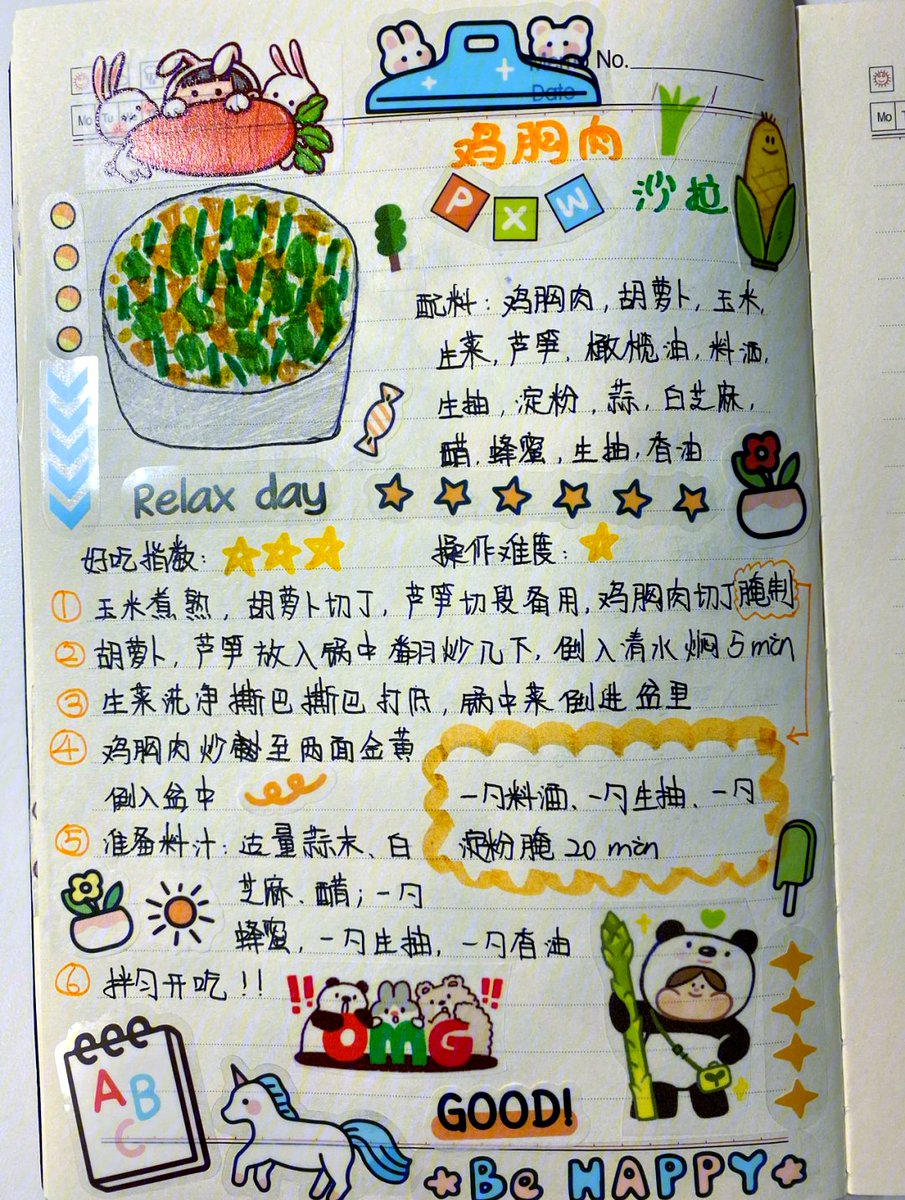 No.
Date
Mo Tu
Mo
鸡胸肉
P X W
沙拉
配料：鸡胸肉，胡萝卜，玉米，
生菜，芦笋，橄榄油，料酒，
生抽，淀粉，蒜，白芝麻，
醋，蜂蜜，生抽，香油
Relax day
好吃指数：
操作难度：
① 玉米煮熟，胡萝卜切丁，芦笋切段备用，鸡胸肉切丁腌制
② 胡萝卜，芦笋放入锅中翻炒几下，倒入清水焖5min
③ 生菜洗净撕巴撕巴打底，锅中菜倒进盆里
④ 鸡胸肉炒至两面金黄
倒入盆中
一勺料酒、一勺生抽、一勺
淀粉腌20min
⑤ 准备料汁：适量蒜末、白
芝麻、醋；一勺
蜂蜜，一勺生抽，一勺香油
⑥ 拌匀开吃！！
!! OMG !!
A B C
GOOD!
Be HAPPY